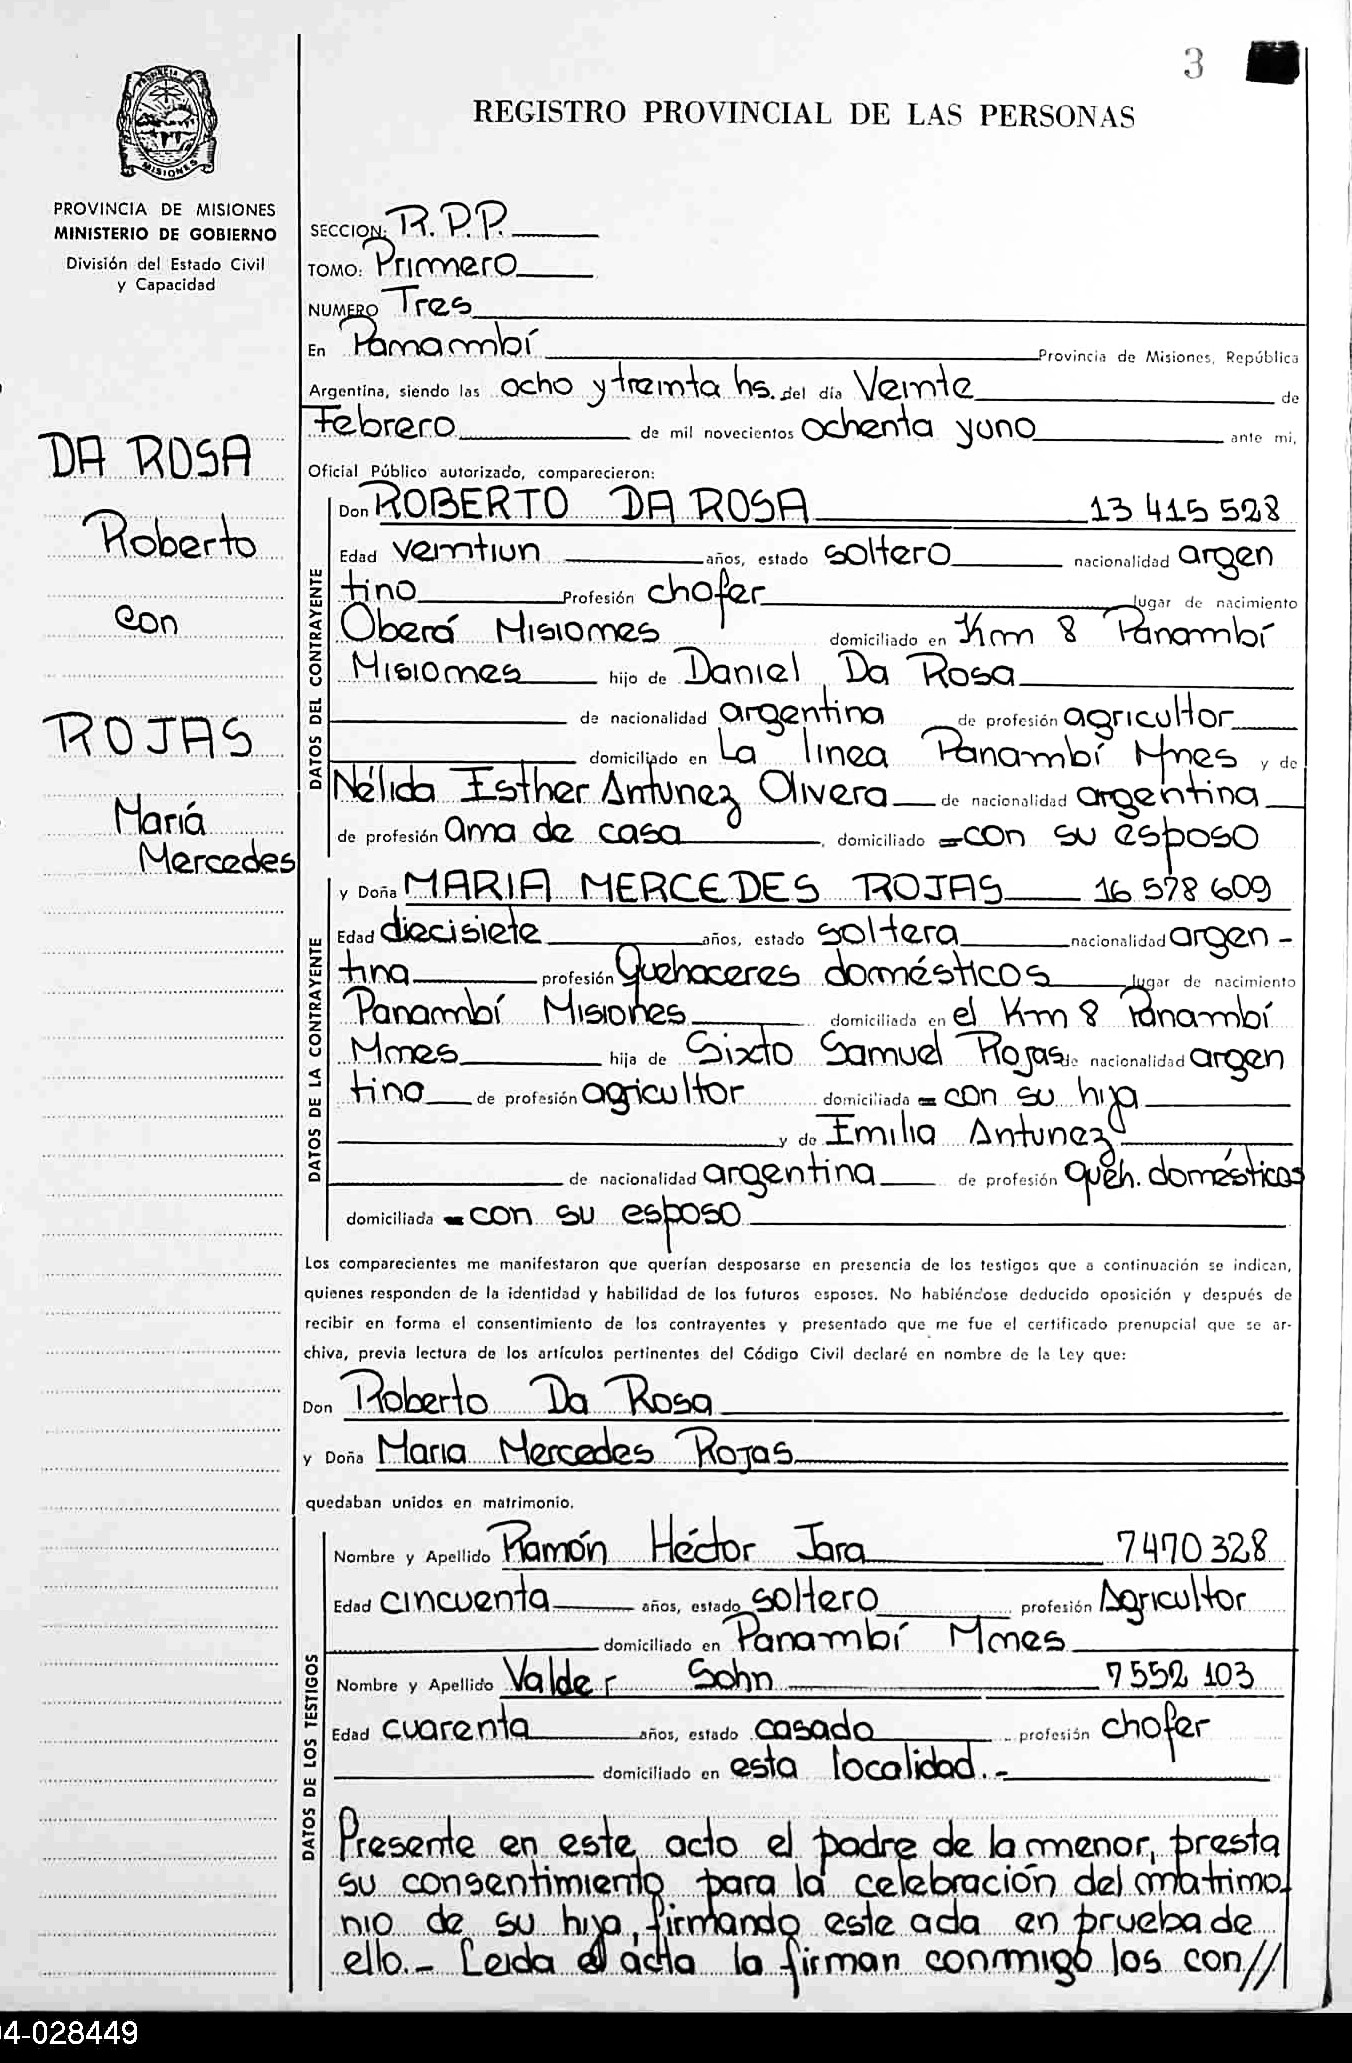 3
REGISTRO PROVINCIAL DE LAS PERSONAS
PROVINCIA DE MISIONES
MINISTERIO DE GOBIERNO
División del Estado Civil
y Capacidad
DA ROSA
Roberto
con
ROJAS
Mariá
Mercedes
SECCION: R.P.P.
TOMO: Primero
NUMERO Tres
En Panambí Provincia de Misiones, República
Argentina, siendo las ocho y treinta hs. del día Veinte de
Febrero de mil novecientos ochenta y uno ante mi,
Oficial Público autorizado, comparecieron:
DATOS DEL CONTRAYENTE
Don ROBERTO DA ROSA 13 415 528
Edad veintiun años, estado soltero nacionalidad argen
tino Profesión chofer lugar de nacimiento
Oberá Misiones domiciliado en Km 8 Panambí
Misiones hijo de Daniel Da Rosa
de nacionalidad argentina de profesión agricultor
domiciliado en La linea Panambí Mnes y de
Nélida Esther Antunez Olivera de nacionalidad argentina
de profesión ama de casa domiciliado =con su esposo
DATOS DE LA CONTRAYENTE
y Doña MARIA MERCEDES ROJAS 16 578 609
Edad diecisiete años, estado soltera nacionalidad argen-
tina profesión Quehaceres domésticos lugar de nacimiento
Panambí Misiones domiciliada en el Km 8 Panambí
Mnes hija de Sixto Samuel Rojas de nacionalidad argen
tino de profesión agricultor domiciliada = con su hija
y de Emilia Antunez
de nacionalidad argentina de profesión queh. domésticos
domiciliada = con su esposo
Los comparecientes me manifestaron que querían desposarse en presencia de los testigos que a continuación se indican,
quienes responden de la identidad y habilidad de los futuros esposos. No habiéndose deducido oposición y después de
recibir en forma el consentimiento de los contrayentes y presentado que me fue el certificado prenupcial que se ar-
chiva, previa lectura de los artículos pertinentes del Código Civil declaré en nombre de la Ley que:
Don Roberto Da Rosa
y Doña Maria Mercedes Rojas
quedaban unidos en matrimonio.
DATOS DE LOS TESTIGOS
Nombre y Apellido Ramón Héctor Jara 7470328
Edad cincuenta años, estado soltero profesión Agricultor
domiciliado en Panambí Mnes
Nombre y Apellido Valder Sohn 7552 103
Edad cuarenta años, estado casado profesión chofer
domiciliado en esta localidad.-
Presente en este acto el padre de la menor, presta
su consentimiento para la celebración del matrimo
nio de su hija, firmando este acta en prueba de
ello.- Leida el acta la firman conmigo los con//
04-028449